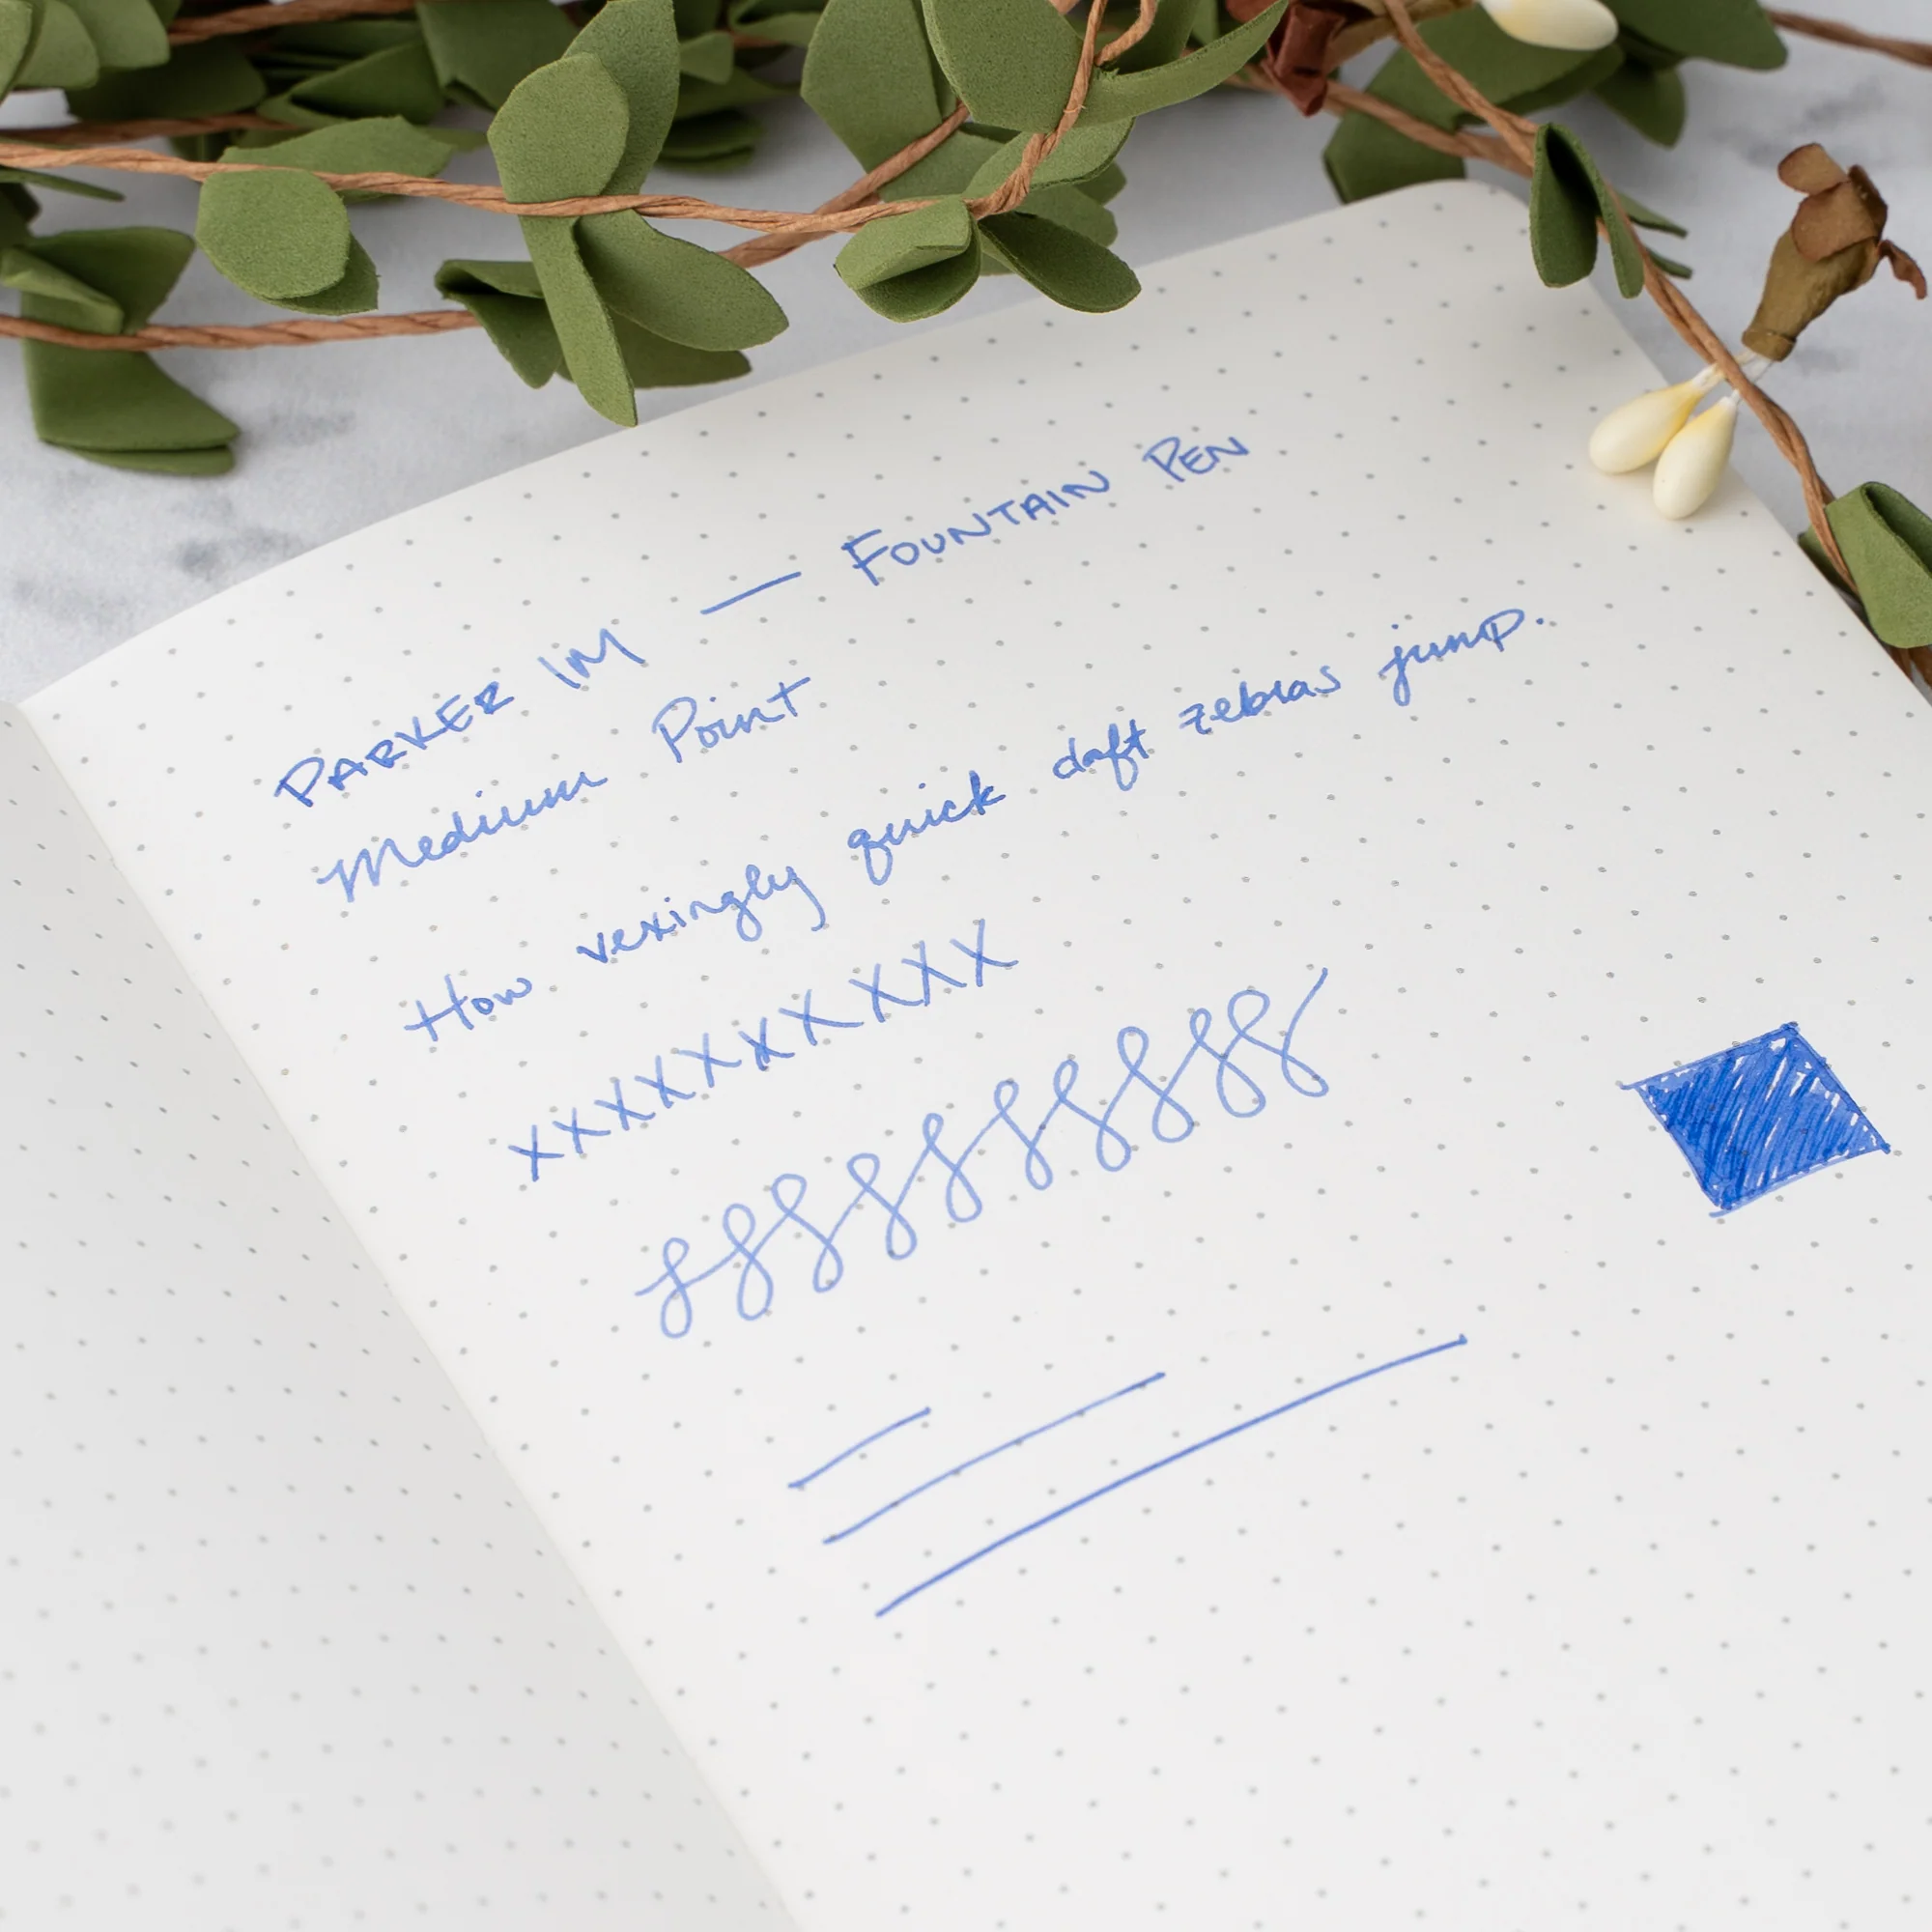 PARKER IM — FOUNTAIN PEN
Medium Point
How vexingly quick daft zebras jump.
XXXXXXXXXXX